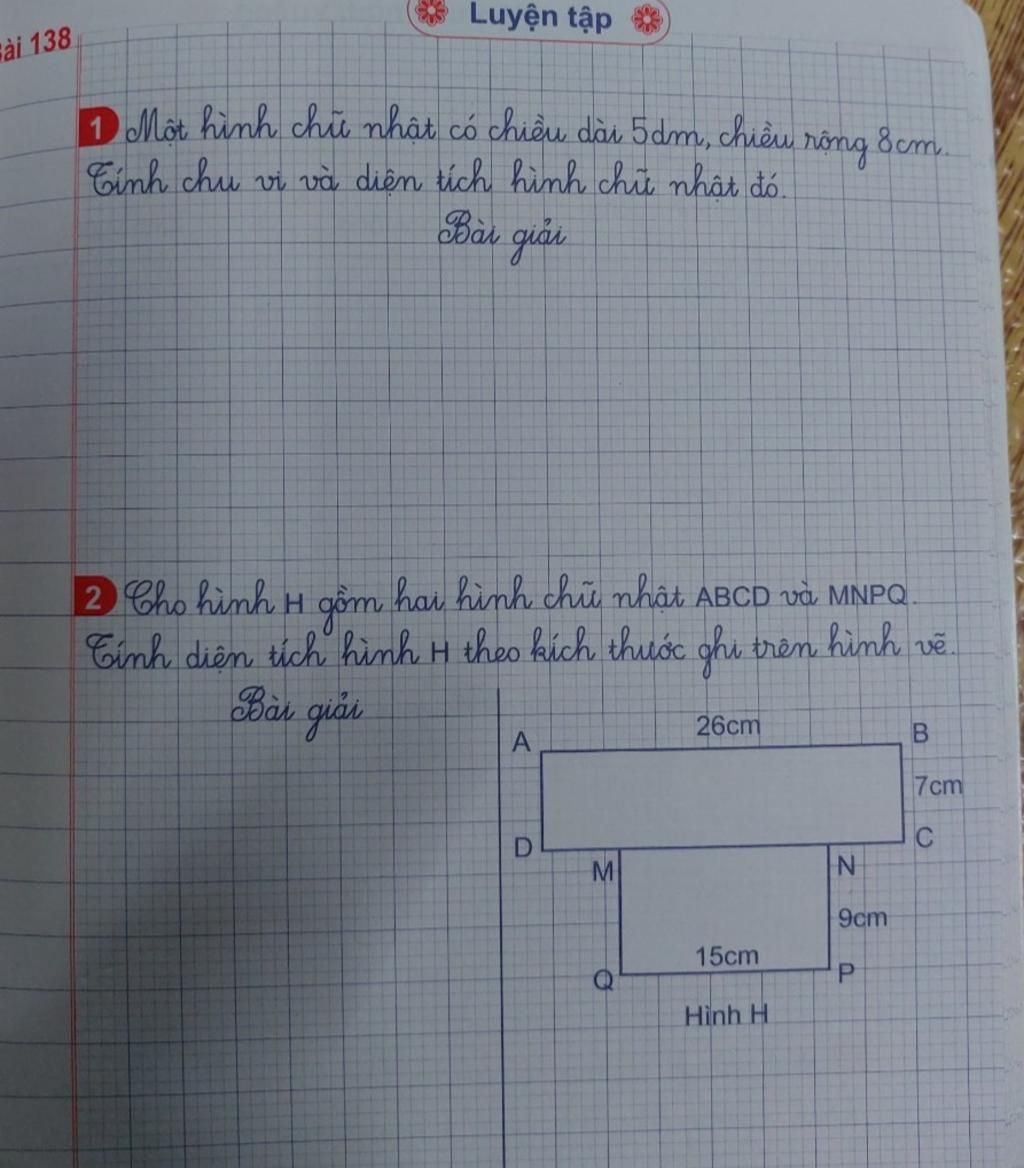 Luyện tập
ài 138
1 Một hình chữ nhật có chiều dài 5dm, chiều rộng 8cm.
Tính chu vi và diện tích hình chữ nhật đó.
Bài giải
2 Cho hình H gồm hai hình chữ nhật ABCD và MNPQ.
Tính diện tích hình H theo kích thước ghi trên hình vẽ.
Bài giải
26cm
A
B
7cm
D
C
M
N
9cm
15cm
Q
P
Hình H